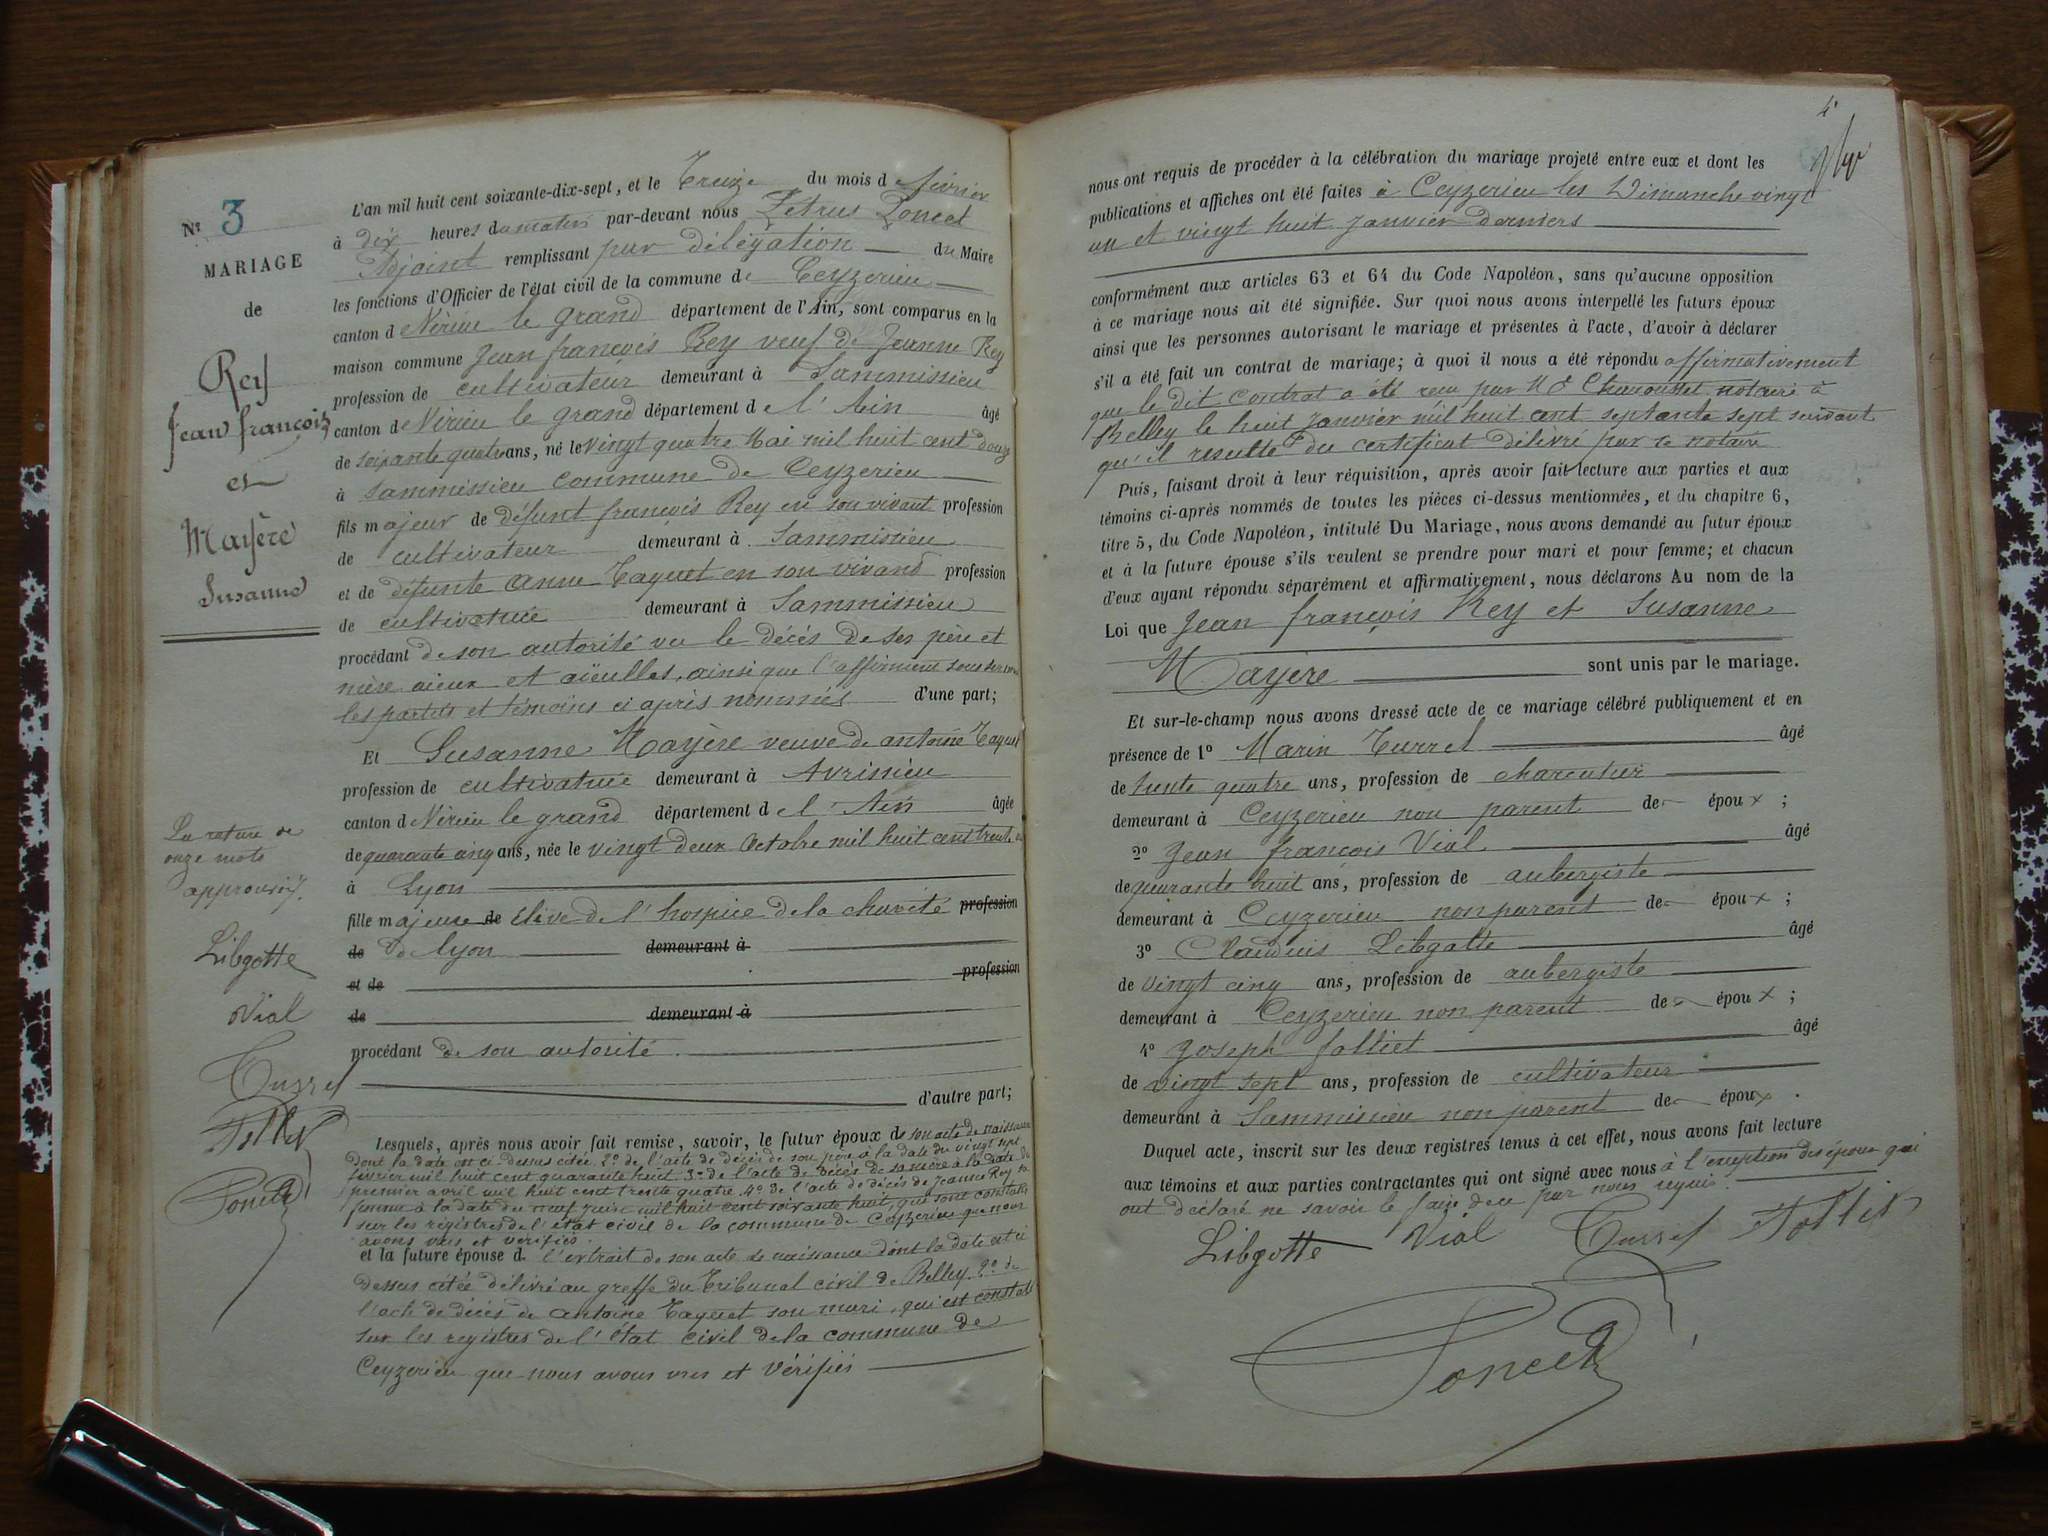 N° 3
MARIAGE
de
Rey
Jean françois
et
Mayère
Susanne
L'an mil huit cent soixante-dix-sept, et le Treize du mois de février
à dix heures du matin par-devant nous Petrus Poncet
Adjoint remplissant par délégation du Maire
les fonctions d'Officier de l'état civil de la commune de Ceyzerieu
canton de Virieu le grand département de l'Ain, sont comparus en la
maison commune Jean françois Rey veuf de Jeanne Rey
profession de cultivateur demeurant à Sammissieu
canton de Virieu le grand département de l'Ain âgé
de soixante quatre ans, né le vingt quatre Mai mil huit cent douze
à Sammissieu commune de Ceyzerieu
fils majeur de défunt françois Rey en son vivant profession
de cultivateur demeurant à Sammissieu
et de défunte Anne Taquet en son vivand profession
de cultivatrice demeurant à Sammissieu
procédant de son autorité vu le décès de ses père et
mère aieux et aïeulles, ainsi que l'affirment sous serment
les parties et témoins ci après nommés d'une part;
Et Susanne Mayère veuve de antoine Taquet
profession de cultivatrice demeurant à Avrissieu
canton de Virieu le grand département de l'Ain âgée
de quarante cinq ans, née le vingt deux Octobre mil huit cent trente et
à Lyon
fille majeure de élève de l'hospice de la charité profession
de de lyon demeurant à
et de profession
de demeurant à
procédant de son autorité
d'autre part;
Lesquels, après nous avoir fait remise, savoir, le futur époux de son acte de naissance
dont la date est ci-dessus citée 2° de l'acte de décès de son père à la date du vingt sept
février mil huit cent quarante huit 3° de l'acte de décès de sa mère à la date du
premier avril mil huit cent trente quatre 4° de l'acte de décès de Jeanne Rey sa
femme à la date du neuf juin mil huit cent soixante huit, qui sont constatés
sur les registres de l'état civil de la commune de Ceyzerieu que nous
avons vus et vérifiés.
et la future épouse d. l'extrait de son acte de naissance dont la date est ci
dessus citée délivré au greffe du Tribunal civil de Belley 2° de
l'acte de décès de antoine Taquet son mari, qui est constaté
sur les registres de l'état civil de la commune de
Ceyzerieu que nous avons vus et vérifiés
La rature de
onze mots
approuvés.
Libgotte
Vial
Turrel
Folliet
Poncet
4
nous ont requis de procéder à la célébration du mariage projeté entre eux et dont les
publications et affiches ont été faites à Ceyzerieu les Dimanche vingt
un et vingt huit Janvier derniers
conformément aux articles 63 et 64 du Code Napoléon, sans qu'aucune opposition
à ce mariage nous ait été signifiée. Sur quoi nous avons interpellé les futurs époux
ainsi que les personnes autorisant le mariage et présentes à l'acte, d'avoir à déclarer
s'il a été fait un contrat de mariage; à quoi il nous a été répondu affirmativement
que le dit contrat a été reçu par Me notaire à
Belley le huit Janvier mil huit cent septante sept suivant
qu'il résulte du certificat délivré par ce notaire
Puis, faisant droit à leur réquisition, après avoir fait lecture aux parties et aux
témoins ci-après nommés de toutes les pièces ci-dessus mentionnées, et du chapitre 6,
titre 5, du Code Napoléon, intitulé Du Mariage, nous avons demandé au futur époux
et à la future épouse s'ils veulent se prendre pour mari et pour femme; et chacun
d'eux ayant répondu séparément et affirmativement, nous déclarons Au nom de la
Loi que Jean françois Rey et Susanne
Mayère sont unis par le mariage.
Et sur-le-champ nous avons dressé acte de ce mariage célébré publiquement et en
présence de 1° Marin Turrel âgé
de trente quatre ans, profession de charcutier
demeurant à Ceyzerieu non parent de époux ;
2° Jean françois Vial âgé
de quarante huit ans, profession de aubergiste
demeurant à Ceyzerieu non parent de époux ;
3° Claudius Libgotte âgé
de vingt cinq ans, profession de aubergiste
demeurant à Ceyzerieu non parent de époux ;
4° Joseph folliet âgé
de vingt sept ans, profession de cultivateur
demeurant à Sammissieu non parent de époux .
Duquel acte, inscrit sur les deux registres tenus à cet effet, nous avons fait lecture
aux témoins et aux parties contractantes qui ont signé avec nous à l'exception des époux qui
ont déclaré ne savoir le faire de ce par nous requis.
Libgotte Vial Turrel Folliet
Poncet